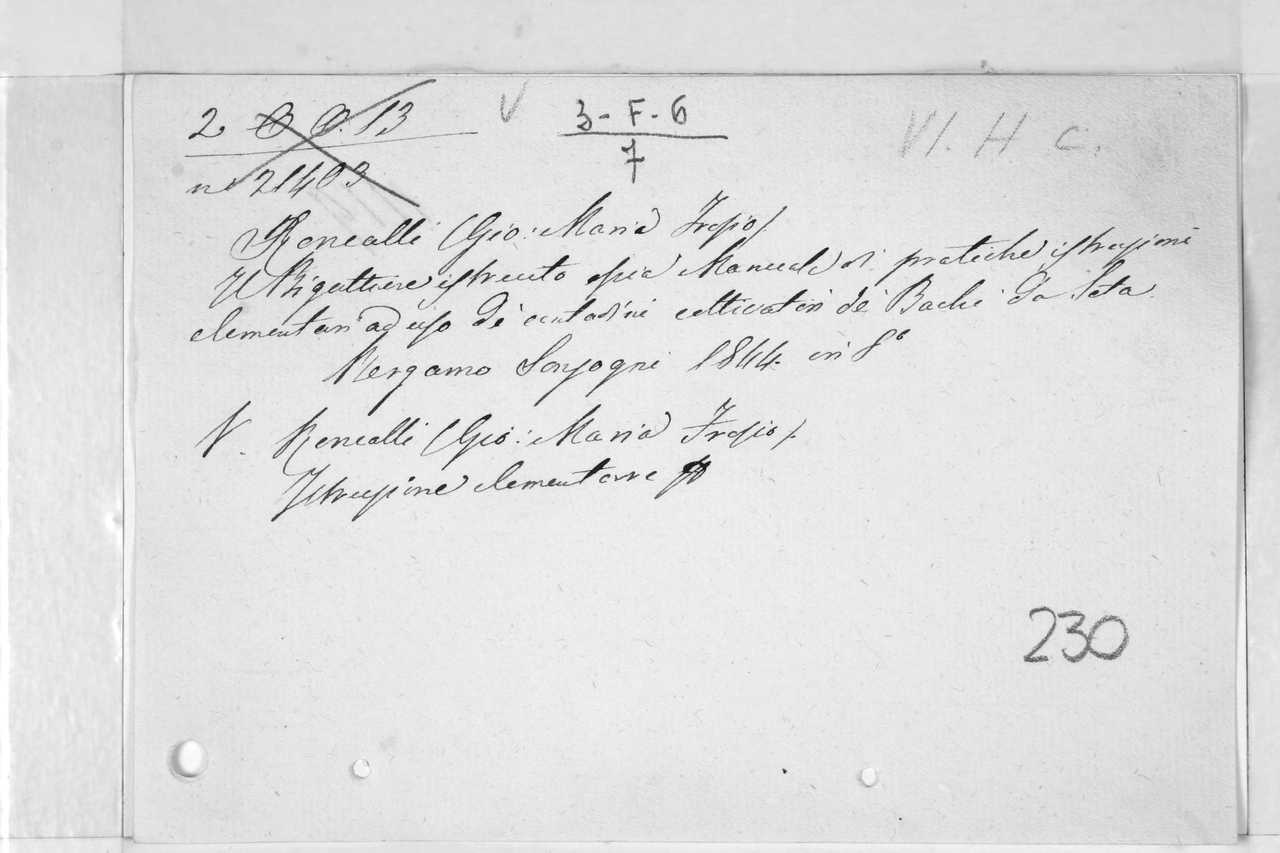 2 O O. 13 V 3-F-6 VI. H c.
n° 21403 7
Roncalli (Gio: Maria
Il Bigattiere istruito ossia Manuale di pratiche istruzioni
elementari ad uso de contadini coltivatori de Bachi da Seta.
Bergamo Sonzogni 1844. in 8°
V. Roncalli (Gio: Maria
Istruzione elementare
230